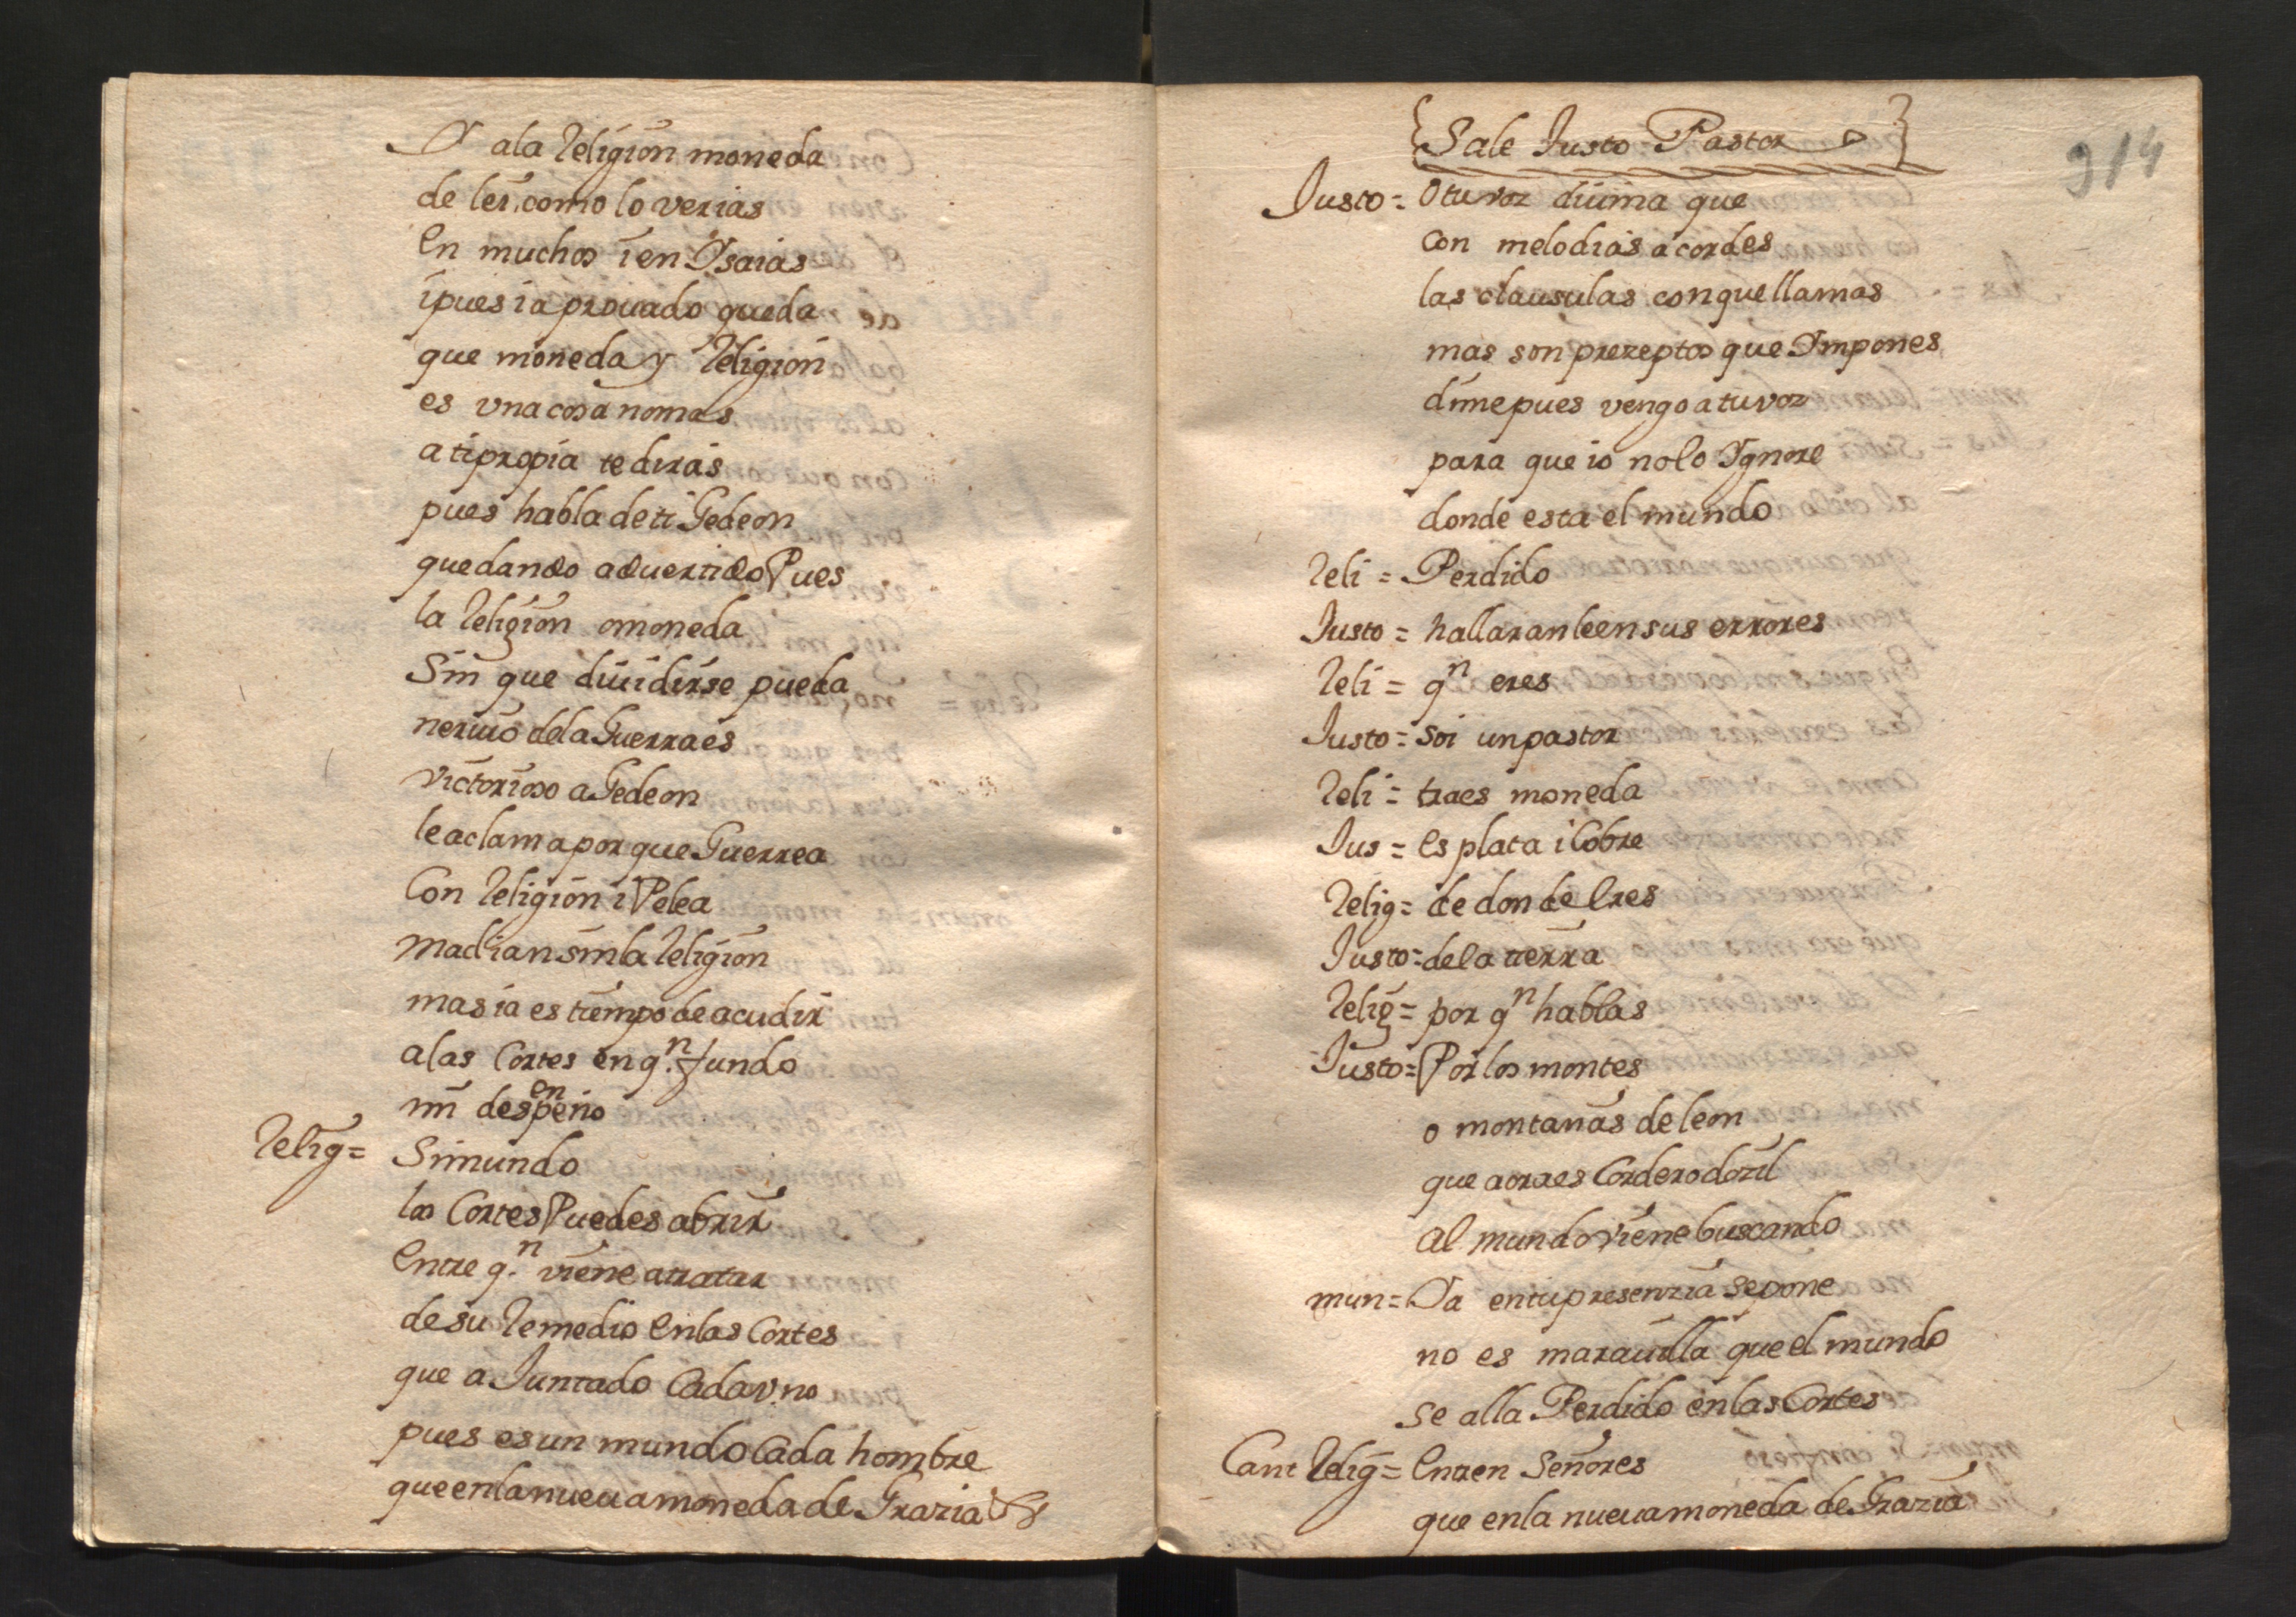 Y ala Religion moneda
de lei como lo verias
En muchos i en Ysaias
i pues ia prouado queda
que moneda y Religion
es vna cosa nomas
a ti propia te diras
pues habla de ti Gedeon
quedando aduertido Pues
la Religion o moneda
Sin que diuidirse pueda
neruio dela Guerra es
victorioso a Gedeon
le aclama por que Guerrea
Con Religion i Pelea
Madian sin la Religion
mas ia es tiempo de acudir
a las Cortes en qn. fundo
mi desenpeño
Relig = Si mundo
las Cortes Puedes abrir
Entre qn. viene a tratar
de su Remedio En las Cortes
que a Juntado Cada vno
pues es un mundo Cada hombre
que en la nueua moneda de Grazia &
314
{Sale Justo Pastor}
Justo = O tu voz diuina que
con melodias acordes
las clausulas con que llamas
mas son prezeptos que Ympones
dime pues vengo a tu voz
para que io no lo Ygnore
donde esta el mundo
Reli = Perdido
Justo = hallaranle en sus errores
Reli = qn eres
Justo = soi un pastor
Reli = traes moneda
Jus = Es plata i Cobre
Relig = de donde Eres
Justo = de la tierra
Relig = por qn hablas
Justo = Por los montes
o montañas de leon
que aora es Cordero dozil
al mundo viene buscando
mun = Ya en tu presenzia se pone
no es marauilla que el mundo
se alla Perdido en las Cortes
Cant Relig = Entren Señores
que en la nueua moneda de Grazia